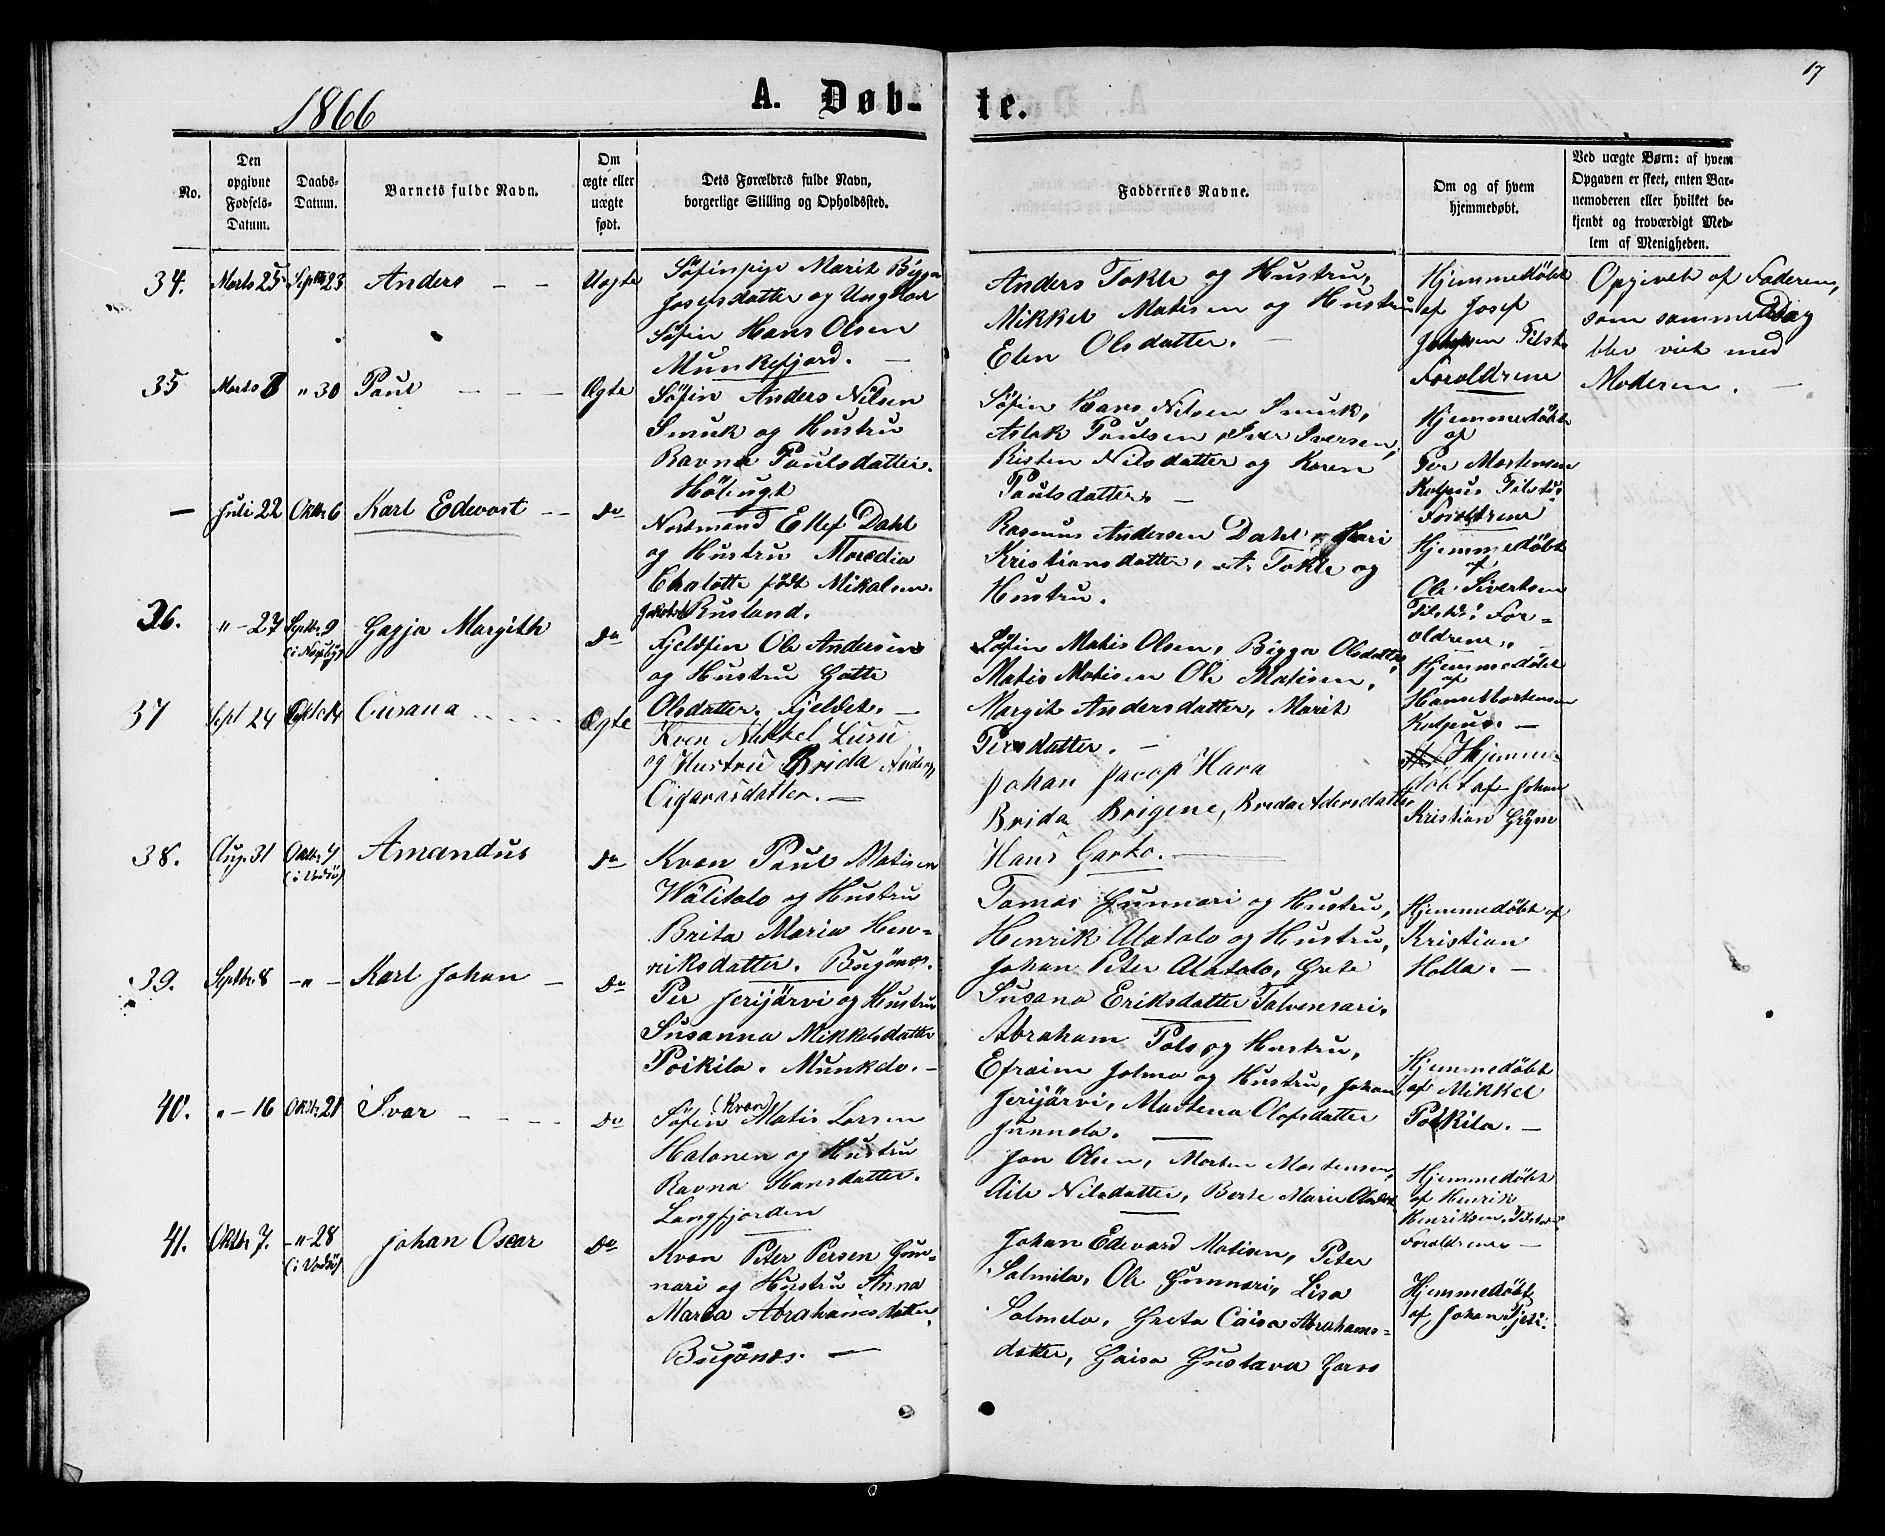 17
1866
A. Døb-
te.
No.
Den
opgivne
Fødsels-
Datum.
Daabs-
Datum.
Barnets fulde Navn.
Om
ægte eller
uægte
født.
Dets Forældres fulde Navn,
borgerlige Stilling og Opholdssted.
Faddernes Navne.
Om og af hvem
hjemmedøbt.
Ved uægte Børn: af hvem
Opgaven er skeet, enten Bar-
nemoderen eller hvilket be-
kjendt og troværdigt Med-
lem af Menigheden.
34. Marts 25 Septbr 23 Anders — — Uægte
Søfinpige Marit Bigga
Josefsdatter og Ungkarl
Søfin Hans Olsen
Munkefjord. —
Anders Tokle og Hustru,
Mikkel Matisen og Hustru
Elen Olsdatter. —
Hjemmedøbt
af Josef
Tilst.
Forældrene
Opgivet af Faderen,
som samme Dag
blev viet med
Moderen. —
35 Marts 8 " 30 Paul — — — Ægte
Søfin Anders Nilsen
Smuk og Hustru
Ravna Paulsdatter.
Søfin Hans Nilsen Smuk,
Aslak Paulsen, Iver Iversen,
Risten Nilsdatter og Karen
Paulsdatter. —
Hjemmedøbt
af
Per Mortensen
Forældrene
— Juli 22 Oktbr 6 Karl Edevart — — Do
Nordmand Ellef Dahl
og Hustru
født Mikalsen.
Rusland.
Rasmus Andersen Dahl,
Kristiansdatter, A. Tokle og
Hustru.
Hjemmedøbt
af
Ole Sivertsen
Tilst. For-
ældrene. —
36. " — 27 Septbr. 9 Gagja Margith Do
Fjeldfin Ole Andersen
og Hustru Gatte
Olsdatter. Fjeldet. —
Søfin Matis Olsen, Bigga Olsdatter,
Matis Matisen, Ole Matisen,
Margit Andersdatter, Marit
Persdatter. —
Hjemmedøbt
af
Hans Mortensen
37 Sept 24 Cusana — — — Ægte
Kven Mikkel
og Hustru Brida
Johan Jacop Hara
Brida Brigene,
Hans Garko. —
Hjemme-
døbt af Johan
Kristian
38. Aug. 31 Oktbr. 7 Amandus Do
Kvæn Paul Matisen
Wälitalo og Hustru
Brita Maria Hen-
riksdatter. Bugönæs.
Tomas Gunnari og Hustru,
Henrik Alatalo og Hustru,
Johan Peter Alatalo, Greta
Susana Eriksdatter Talvensari.
Hjemmedøbt af
Kristian
Holla. —
39. Septbr. 8 — " — Karl Johan — Do
Per Jerijärvi og Hustru
Susanna Mikkelsdatter
Poikila. —
Abraham Palo og Hustru,
Efraim Jolma og Hustru, Johan
Jerijärvi, Martena Olofsdatter
Hjemmedøbt
af Mikkel
Poikila. —
40. " — 16 Oktbr. 21 Ivar — — — Do
(Kvæn)
Søfin Matis Larsen
Halonen og Hustru
Ravna Hansdatter.
Langfjorden
Jon Olsen, Morten Mortensen,
Nilsdatter, Berte Marie
Hjemmedøbt
af Henrik
Henriksen.
Forældrene —
41. Oktbr. 7. — " — 28 Johan Oscar Do
Kvæn Peter Persen Gun-
nari og Hustru Anna
Maria Abrahamsdatter,
Bugönæs. —
Johan Edevard Matisen, Peter
Salmila, Ole Gunnari, Lisa
Salmela, Greta Caisa Abrahams-
datter, Gaisa Gustava
Hjemmedøbt
af Johan